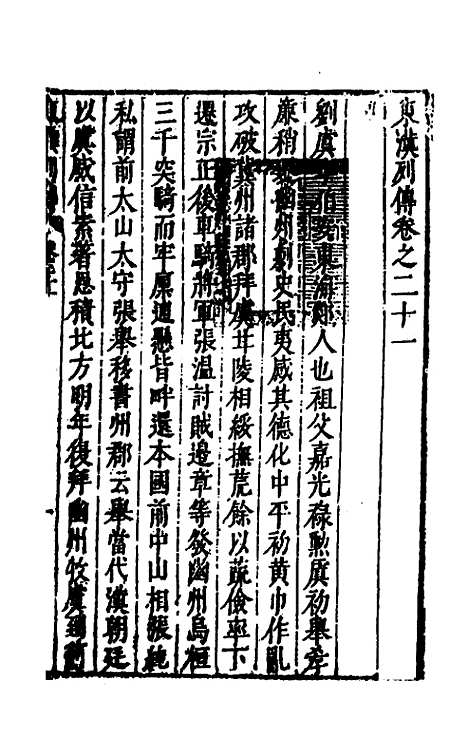 東漢列傳卷之二十一
劉虞字伯安東海郯人也祖父嘉光祿勲虞初舉孝
廉稍遷幽州刺史民夷感其德化中平初黃巾作亂
攻破冀州諸郡拜虞甘陵相綏撫荒餘以蔬儉率下
遷宗正後車騎將軍張溫討賊邊章等發幽州烏桓
三千突騎而牢廩逋懸皆畔還本國前中山相張純
私謂前太山太守張舉移書州郡云舉當代漢朝廷
以虞威信素著恩積北方明年復拜幽州牧虞到薊